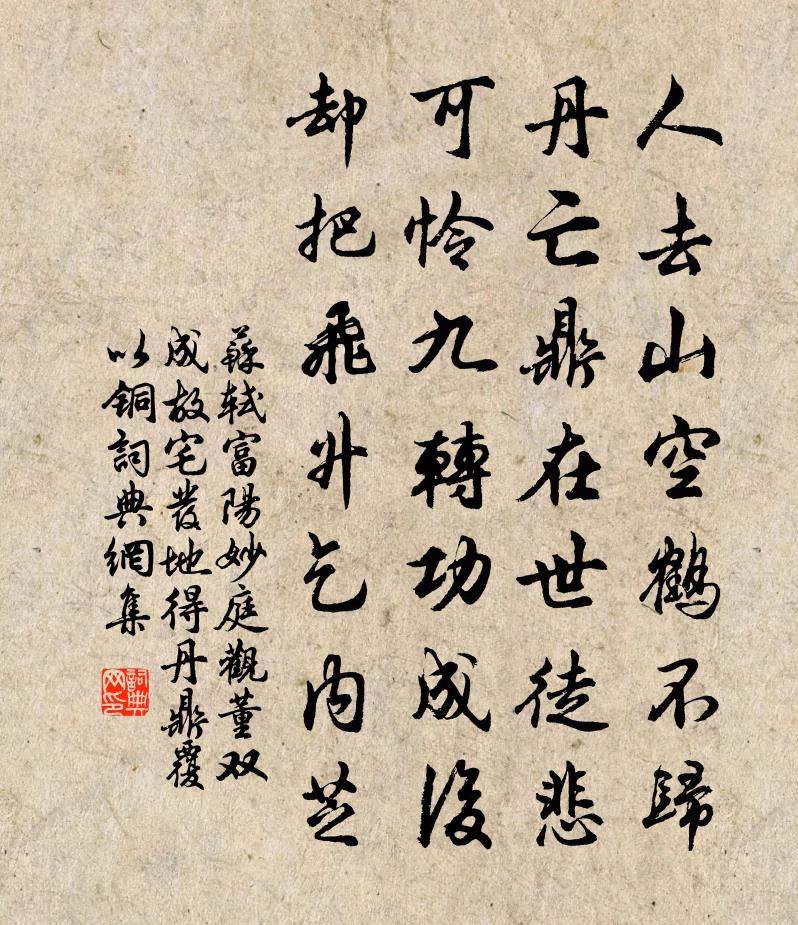 人去山空鶴不歸
丹亡鼎在世徒悲
可憐九轉功成後
却把飛升乞内芝
蘇軾富陽妙庭觀董双
成故宅發地得丹鼎覆
以銅詞典網集
詞典
网印